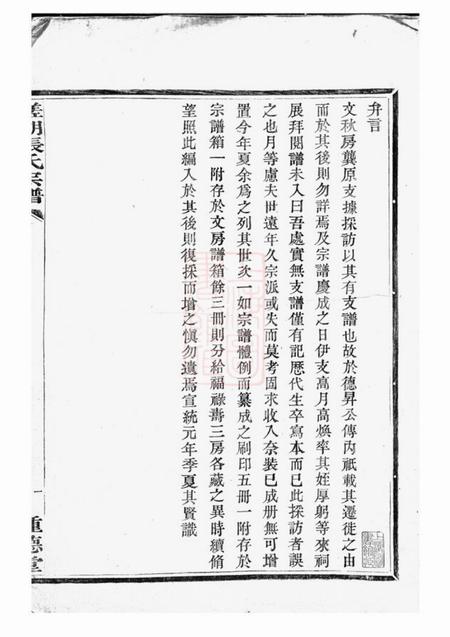 弁言
文秋房龔原支據採訪以其有支譜也故於德昇公傳內祇載其遷徙之由
而於其後則勿詳焉及宗譜慶成之日伊支高月高煥率其姪厚躬等來祠
展拜閱譜未入曰吾處實無支譜僅有記歷代生卒寫本而已此採訪者誤
之也月等慮夫世遠年久宗派或失而莫考固求收入奈裝已成册無可增
置今年夏余爲之列其世次一如宗譜體例而纂成之刷印五册一附存於
宗譜箱一附存於文房譜箱餘三冊則分給福祿壽三房各藏之異時續脩
望照此編入於其後則復採而增之慎勿遺焉宣統元年季夏其賢識
張氏宗譜
一
重德堂